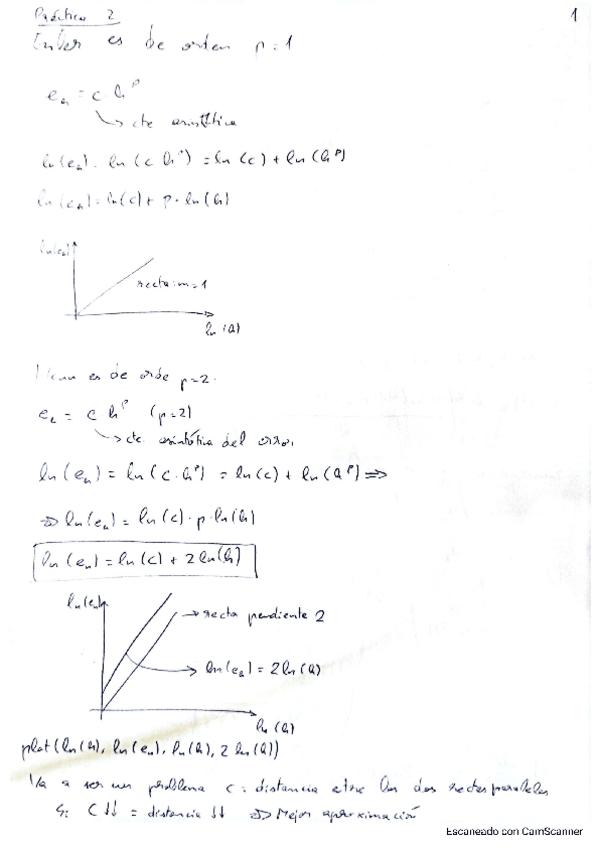 Práctica 2
1
Euler es de orden p=1
e_n = c·h^p
↳ cte asintótica
ln(e_n) = ln(c h^p) = ln(c) + ln(h^p)
ln(e_n) = ln(c) + p·ln(h)
ln(e_n)
recta: m=1
ln(h)
Heun es de orde p=2.
e_n = c h^p (p=2)
↳ cte. asintótica del error
ln(e_n) = ln(c·h^p) = ln(c) + ln(h^p) ⇒
⇒ ln(e_n) = ln(c) · p·ln(h)
ln(e_n) = ln(c) + 2 ln(h)
ln(e_n)
→ recta pendiente 2
→ ln(e_n) = 2 ln(h)
ln(h)
plot(ln(h), ln(e_n), ln(h), 2 ln(h))
Va a ser un problema c = distancia etre las dos rectas paralelas
Si C↓↓ = distancia ↓↓ ⇒ Mejor aproximación
Escaneado con CamScanner